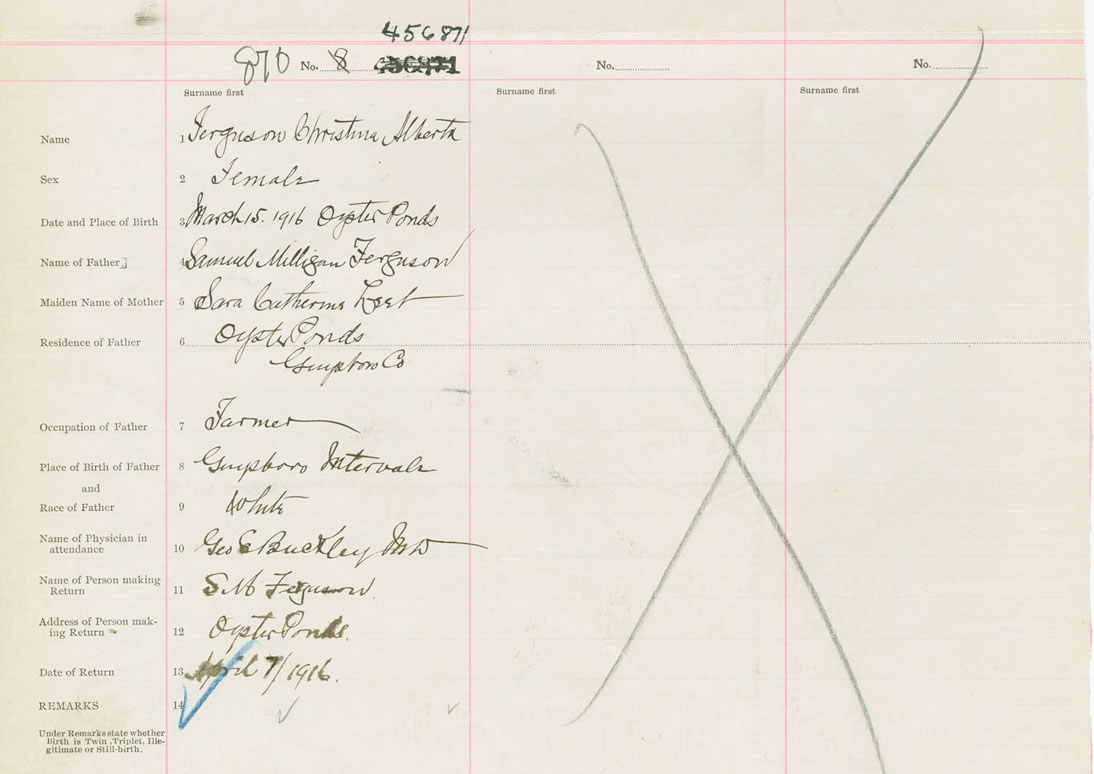 456871
870 No. 8 No. No.
Surname first Surname first Surname first
Name 1 Ferguson Christina Alberta
Sex 2 Female
Date and Place of Birth 3 March 15. 1916 Oyster Ponds
Name of Father 4 Samuel Milligan Ferguson
Maiden Name of Mother 5 Sara Catherine
Residence of Father 6 Oyster Ponds
Guysboro Co
Occupation of Father 7 Farmer
Place of Birth of Father 8 Guysboro Intervale
and
Race of Father 9 White
Name of Physician in
attendance 10 Geo E Buckley MD
Name of Person making
Return 11 S M Ferguson
Address of Person mak-
ing Return 12 Oyster Ponds.
Date of Return 13 April 7/1916.
REMARKS 14
Under Remarks state whether
Birth is Twin, Triplet, Ille-
gitimate or Still-birth.